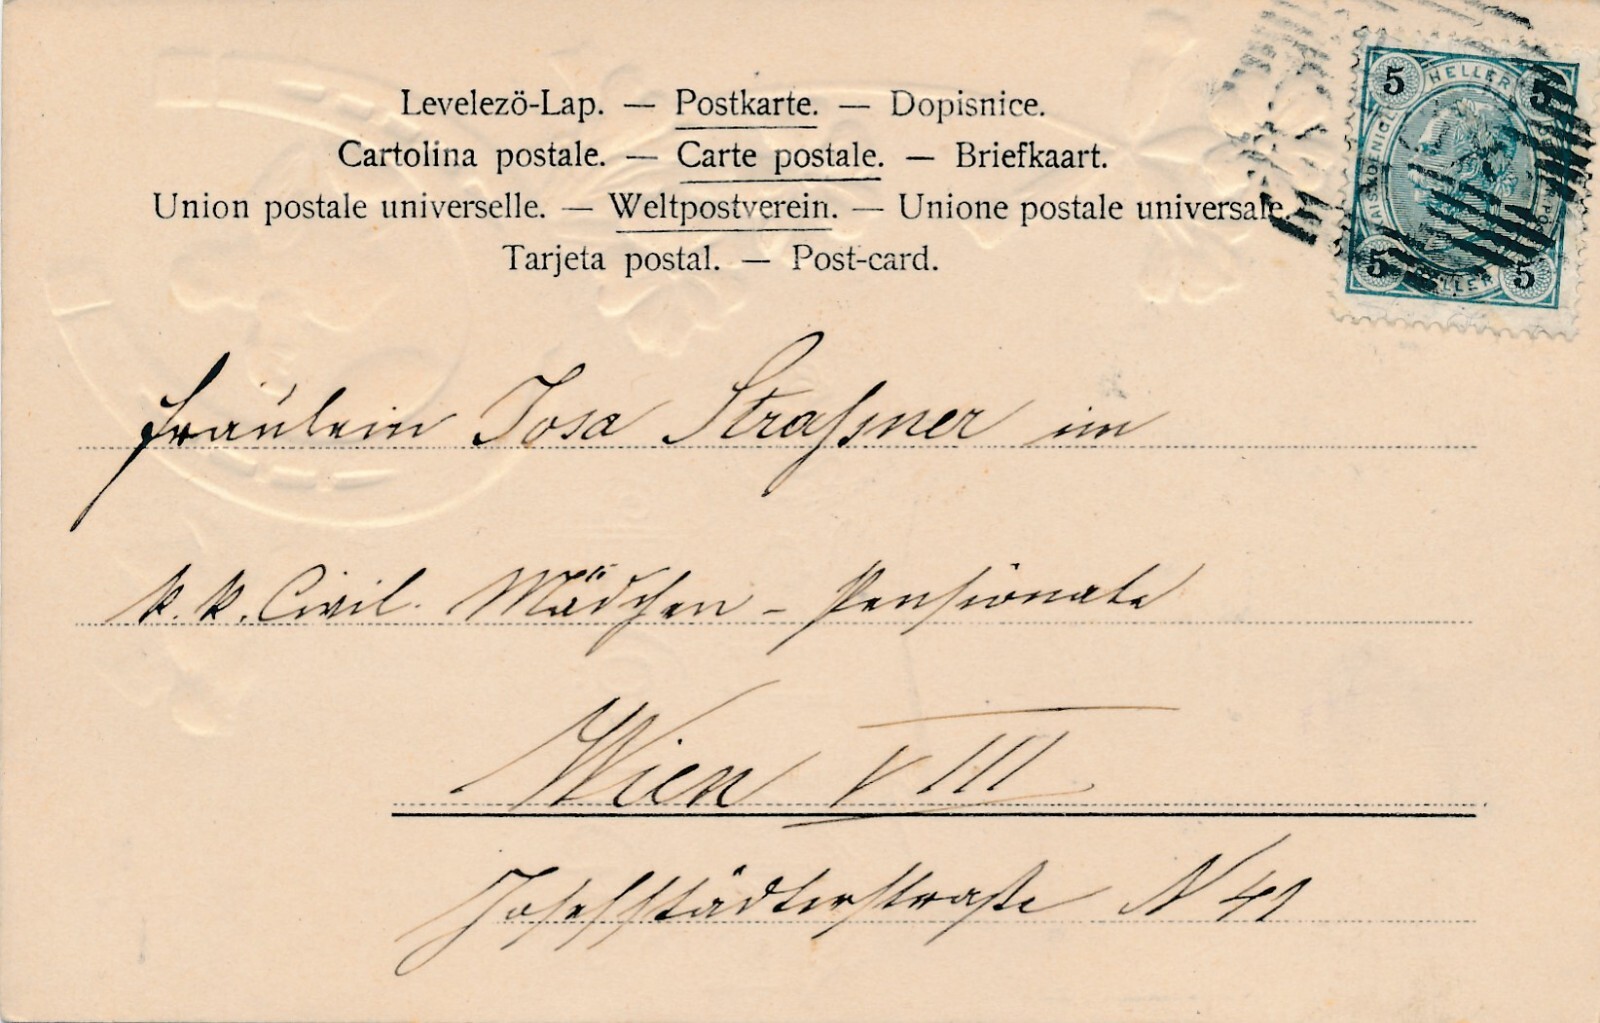 Levelezö-Lap. — Postkarte. — Dopisnice.
Cartolina postale. — Carte postale. — Briefkaart.
Union postale universelle. — Weltpostverein. — Unione postale universale.
Tarjeta postal. — Post-card.
5 HELLER 5
5 HELLER 5
Fräulein Josa Straßner im
k. k. Civil. Mädchen - Pensionate
Wien VIII
Josefstädterstraße N 41